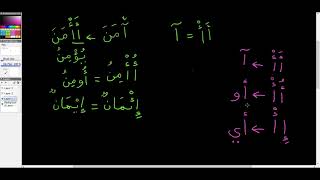 أَأْ = آ
آمَنَ ← أَأْمَنَ
يُؤْمِنُ
أُأْمِنُ = أُومِنُ
إِئْمَانٌ = إِيْمَانٌ
أَأْ ← آ
أُأْ ← أُو
إِأْ ← إِي